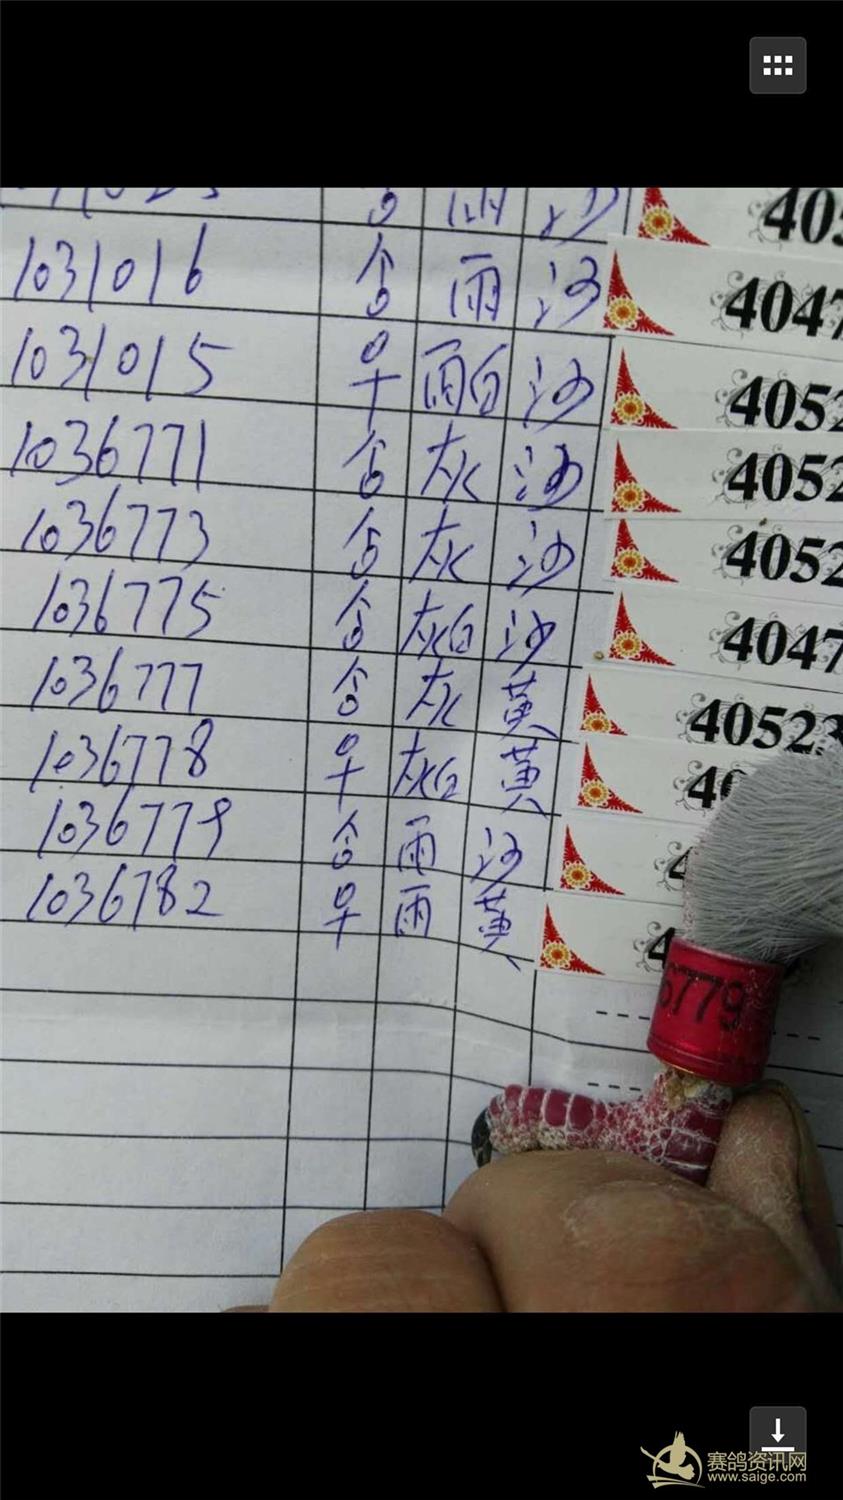 ♂ 雨 沙 405
1031016 ♂ 雨 沙 4047
1031015 ♀ 雨白 沙 4052
1036771 ♂ 灰 沙 4052
1036773 ♂ 灰 沙 4052
1036775 ♂ 灰白 沙 4047
1036777 ♂ 灰 黄 40523
1036778 ♀ 灰白 黄 40
1036779 ♂ 雨 沙 4
1036782 ♀ 雨 黄 4
6779
赛鸽资讯网
www.saige.com